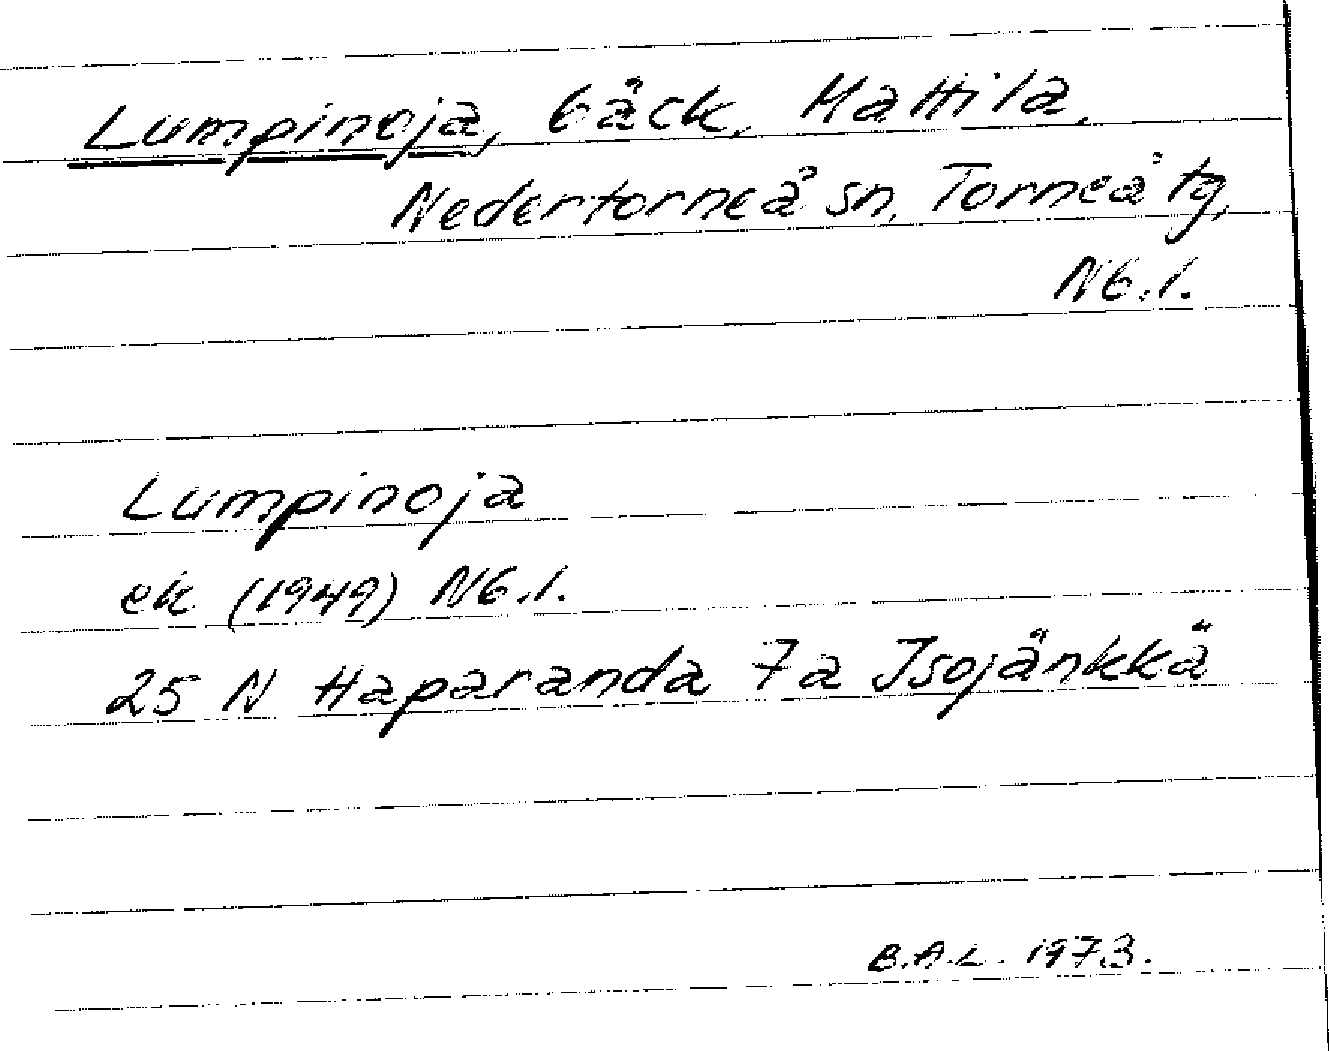 Lumpinoja, bäck, Mattila,
Nedertorneå sn, Torneå tg,
Nb.l.
Lumpinoja
ek (1949) Nb.l.
25 N Haparanda 7a Isojänkkä
B.A.L. 1973.